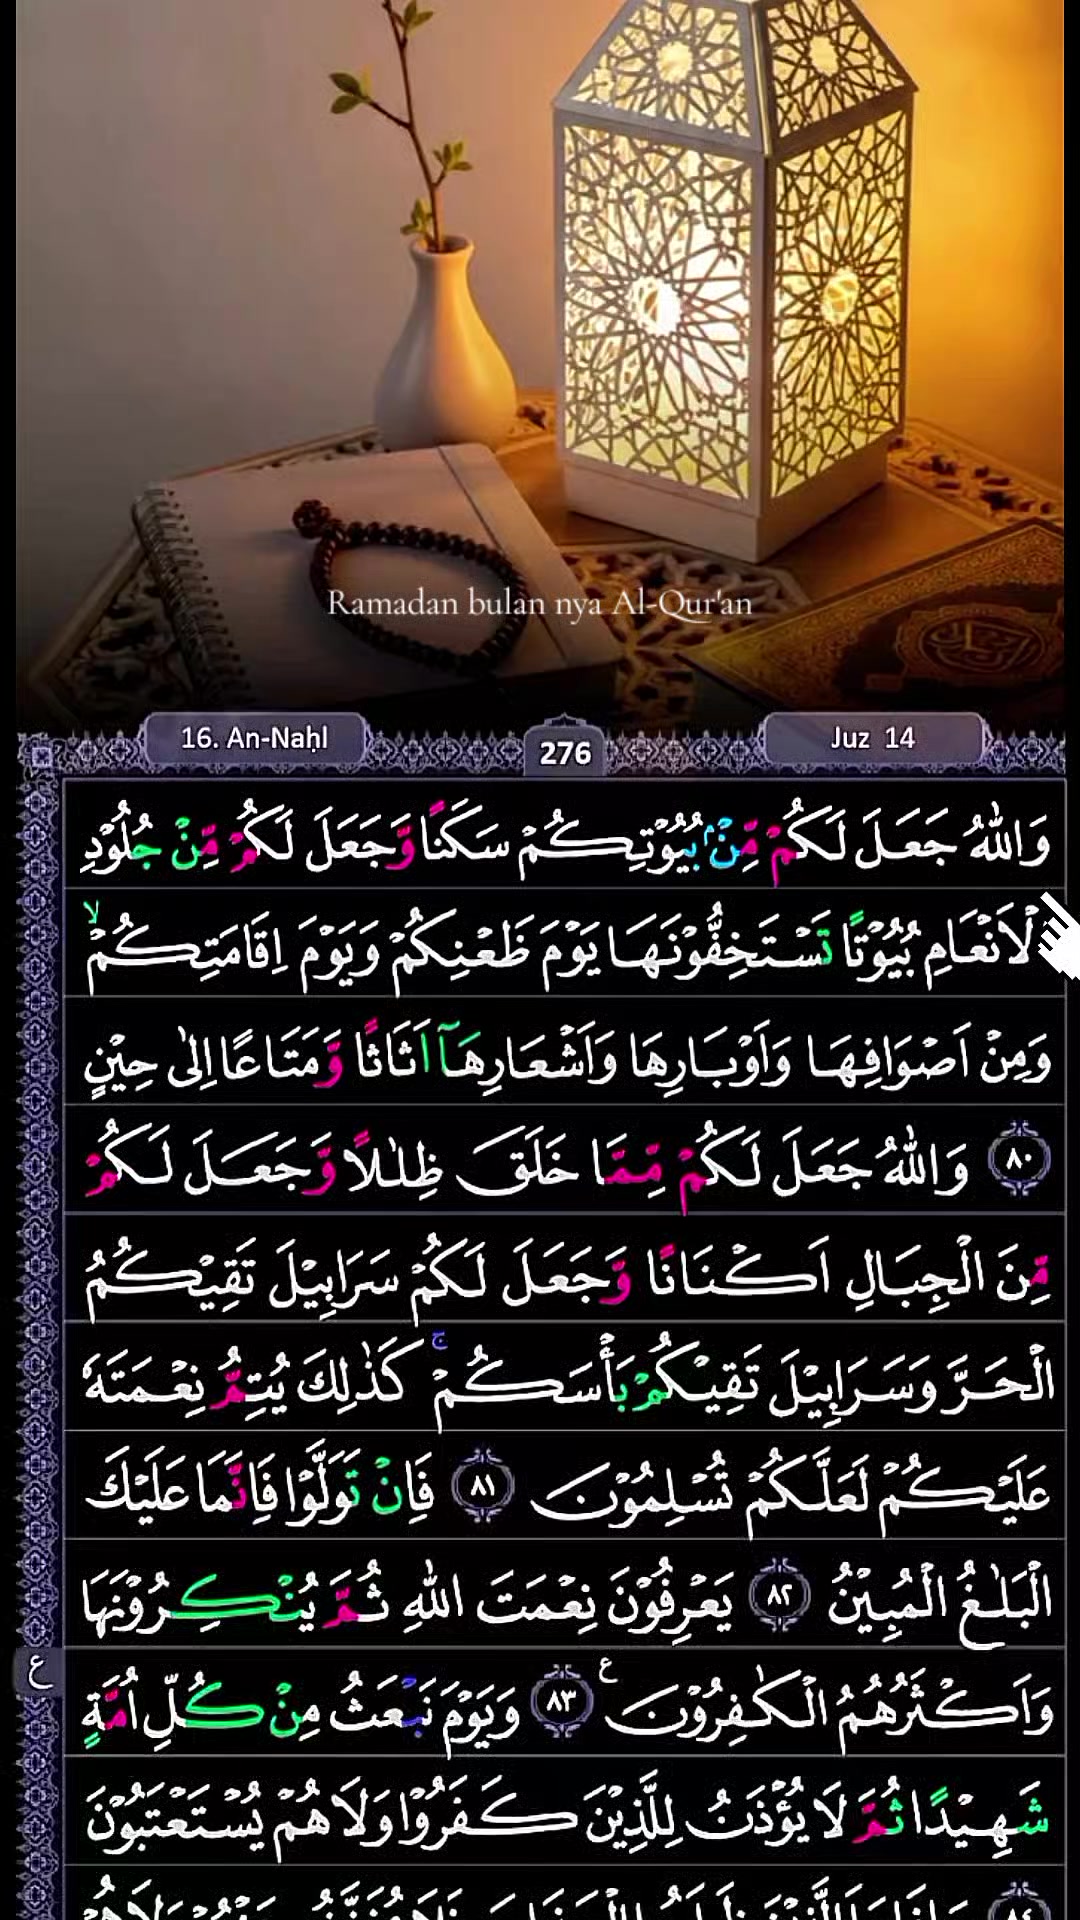 Ramadan bulan nya Al-Qur'an
16. An-Naḥl
276
Juz 14
وَاللّٰهُ جَعَلَ لَكُمْ مِّنْۢ بُيُوْتِكُمْ سَكَنًا وَّجَعَلَ لَكُمْ مِّنْ جُلُوْدِ
الْاَنْعَامِ بُيُوْتًا تَسْتَخِفُّوْنَهَا يَوْمَ ظَعْنِكُمْ وَيَوْمَ اِقَامَتِكُمْ ۙ
وَمِنْ اَصْوَافِهَا وَاَوْبَارِهَا وَاَشْعَارِهَآ اَثَاثًا وَّمَتَاعًا اِلٰى حِيْنٍ
٨٠ وَاللّٰهُ جَعَلَ لَكُمْ مِّمَّا خَلَقَ ظِلٰلًا وَّجَعَلَ لَكُمْ
مِّنَ الْجِبَالِ اَكْنَانًا وَّجَعَلَ لَكُمْ سَرَابِيْلَ تَقِيْكُمُ
الْحَرَّ وَسَرَابِيْلَ تَقِيْكُمْ بَأْسَكُمْ ۚ كَذٰلِكَ يُتِمُّ نِعْمَتَهٗ
عَلَيْكُمْ لَعَلَّكُمْ تُسْلِمُوْنَ ٨١ فَاِنْ تَوَلَّوْا فَاِنَّمَا عَلَيْكَ
الْبَلٰغُ الْمُبِيْنُ ٨٢ يَعْرِفُوْنَ نِعْمَتَ اللّٰهِ ثُمَّ يُنْكِرُوْنَهَا
ع
وَاَكْثَرُهُمُ الْكٰفِرُوْنَ ࣖ ٨٣ وَيَوْمَ نَبْعَثُ مِنْ كُلِّ اُمَّةٍ
شَهِيْدًا ثُمَّ لَا يُؤْذَنُ لِلَّذِيْنَ كَفَرُوْا وَلَا هُمْ يُسْتَعْتَبُوْنَ
٨٤